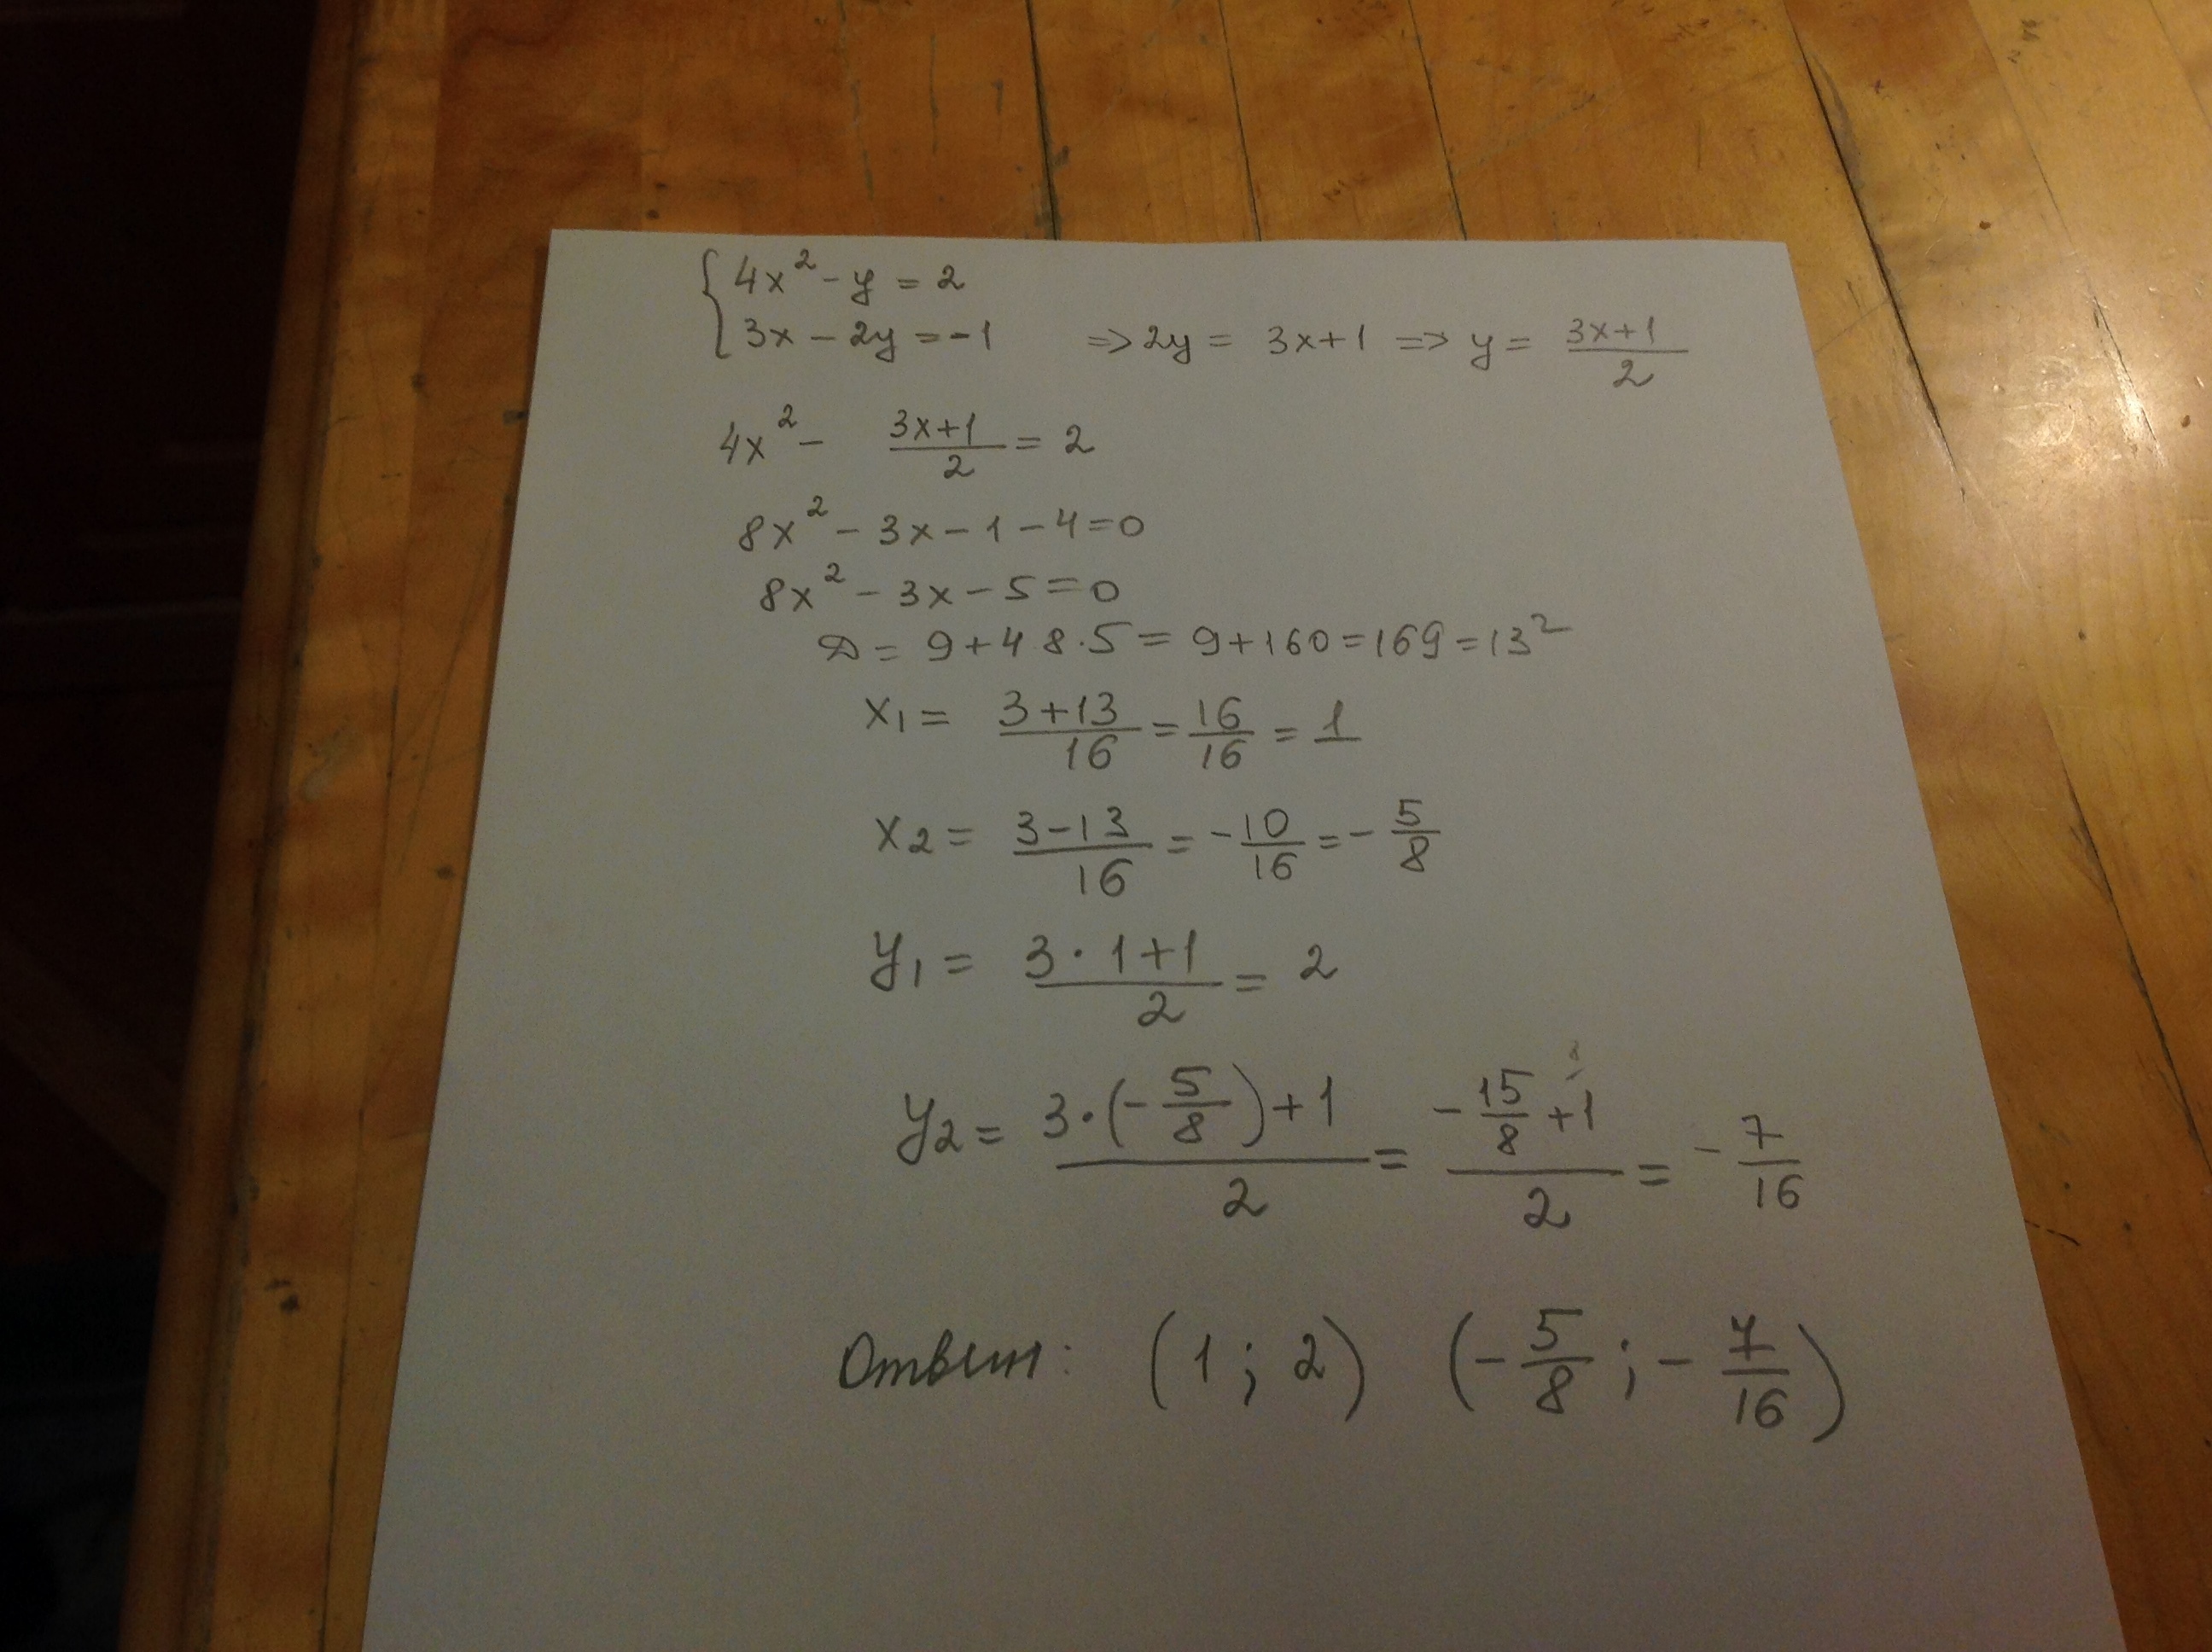 { 4x² - y = 2
3x - 2y = -1 => 2y = 3x+1 => y = (3x+1)/2
4x² - (3x+1)/2 = 2
8x² - 3x - 1 - 4 = 0
8x² - 3x - 5 = 0
D = 9+4 8·5 = 9+160 = 169 = 13²
x₁ = (3+13)/16 = 16/16 = 1
x₂ = (3-13)/16 = -10/16 = -5/8
y₁ = (3·1+1)/2 = 2
y₂ = (3·(-5/8)+1)/2 = (-15/8+1)/2 = -7/16
Ответ: (1; 2) (-5/8; -7/16)